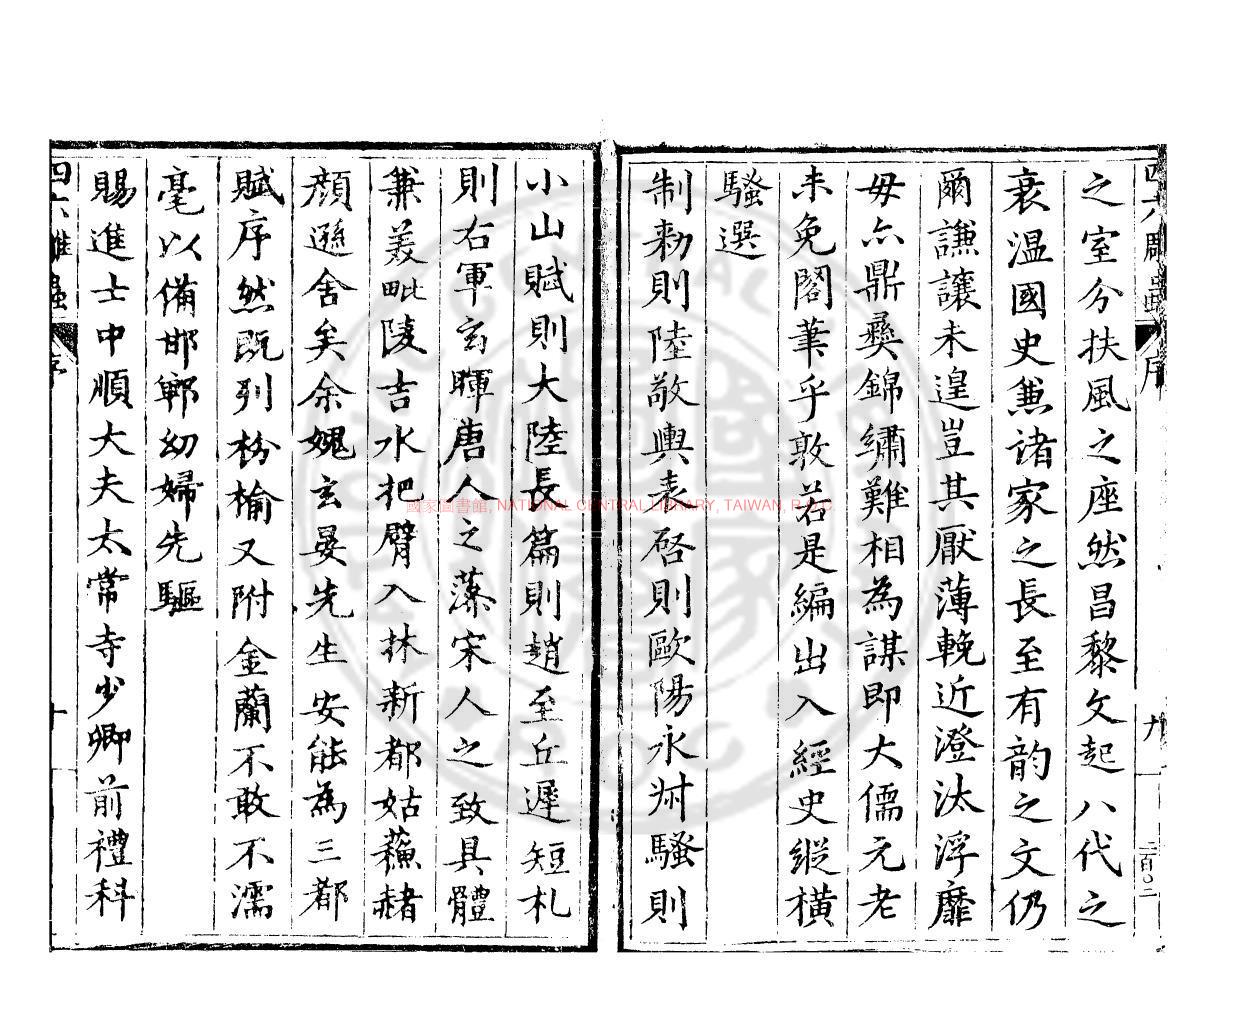 四六雕蟲 序 九 二百〇二
之室分扶風之座然昌黎文起八代之
衰溫國史兼諸家之長至有韵之文仍
爾謙讓未遑豈其厭薄輓近澄汰浮靡
毋亦鼎彝錦繡難相為謀即大儒元老
未免閣筆乎敦若是編出入經史縱橫
騷選
制勑則陸敬輿表啓則歐陽永叔騷則
小山賦則大陸長篇則趙至丘遲短札
則右軍玄暉唐人之藻宋人之致具體
兼美毗陵吉水把臂入林新都姑蘓赭
顏遜舍矣余媿玄晏先生安能為三都
賦序然既列枌榆又附金蘭不敢不濡
毫以備邯鄲幼婦先驅
賜進士中順大夫太常寺少卿前禮科
四六雕蟲 序 十
國家圖書館, NATIONAL CENTRAL LIBRARY, TAIWAN, R.O.C.